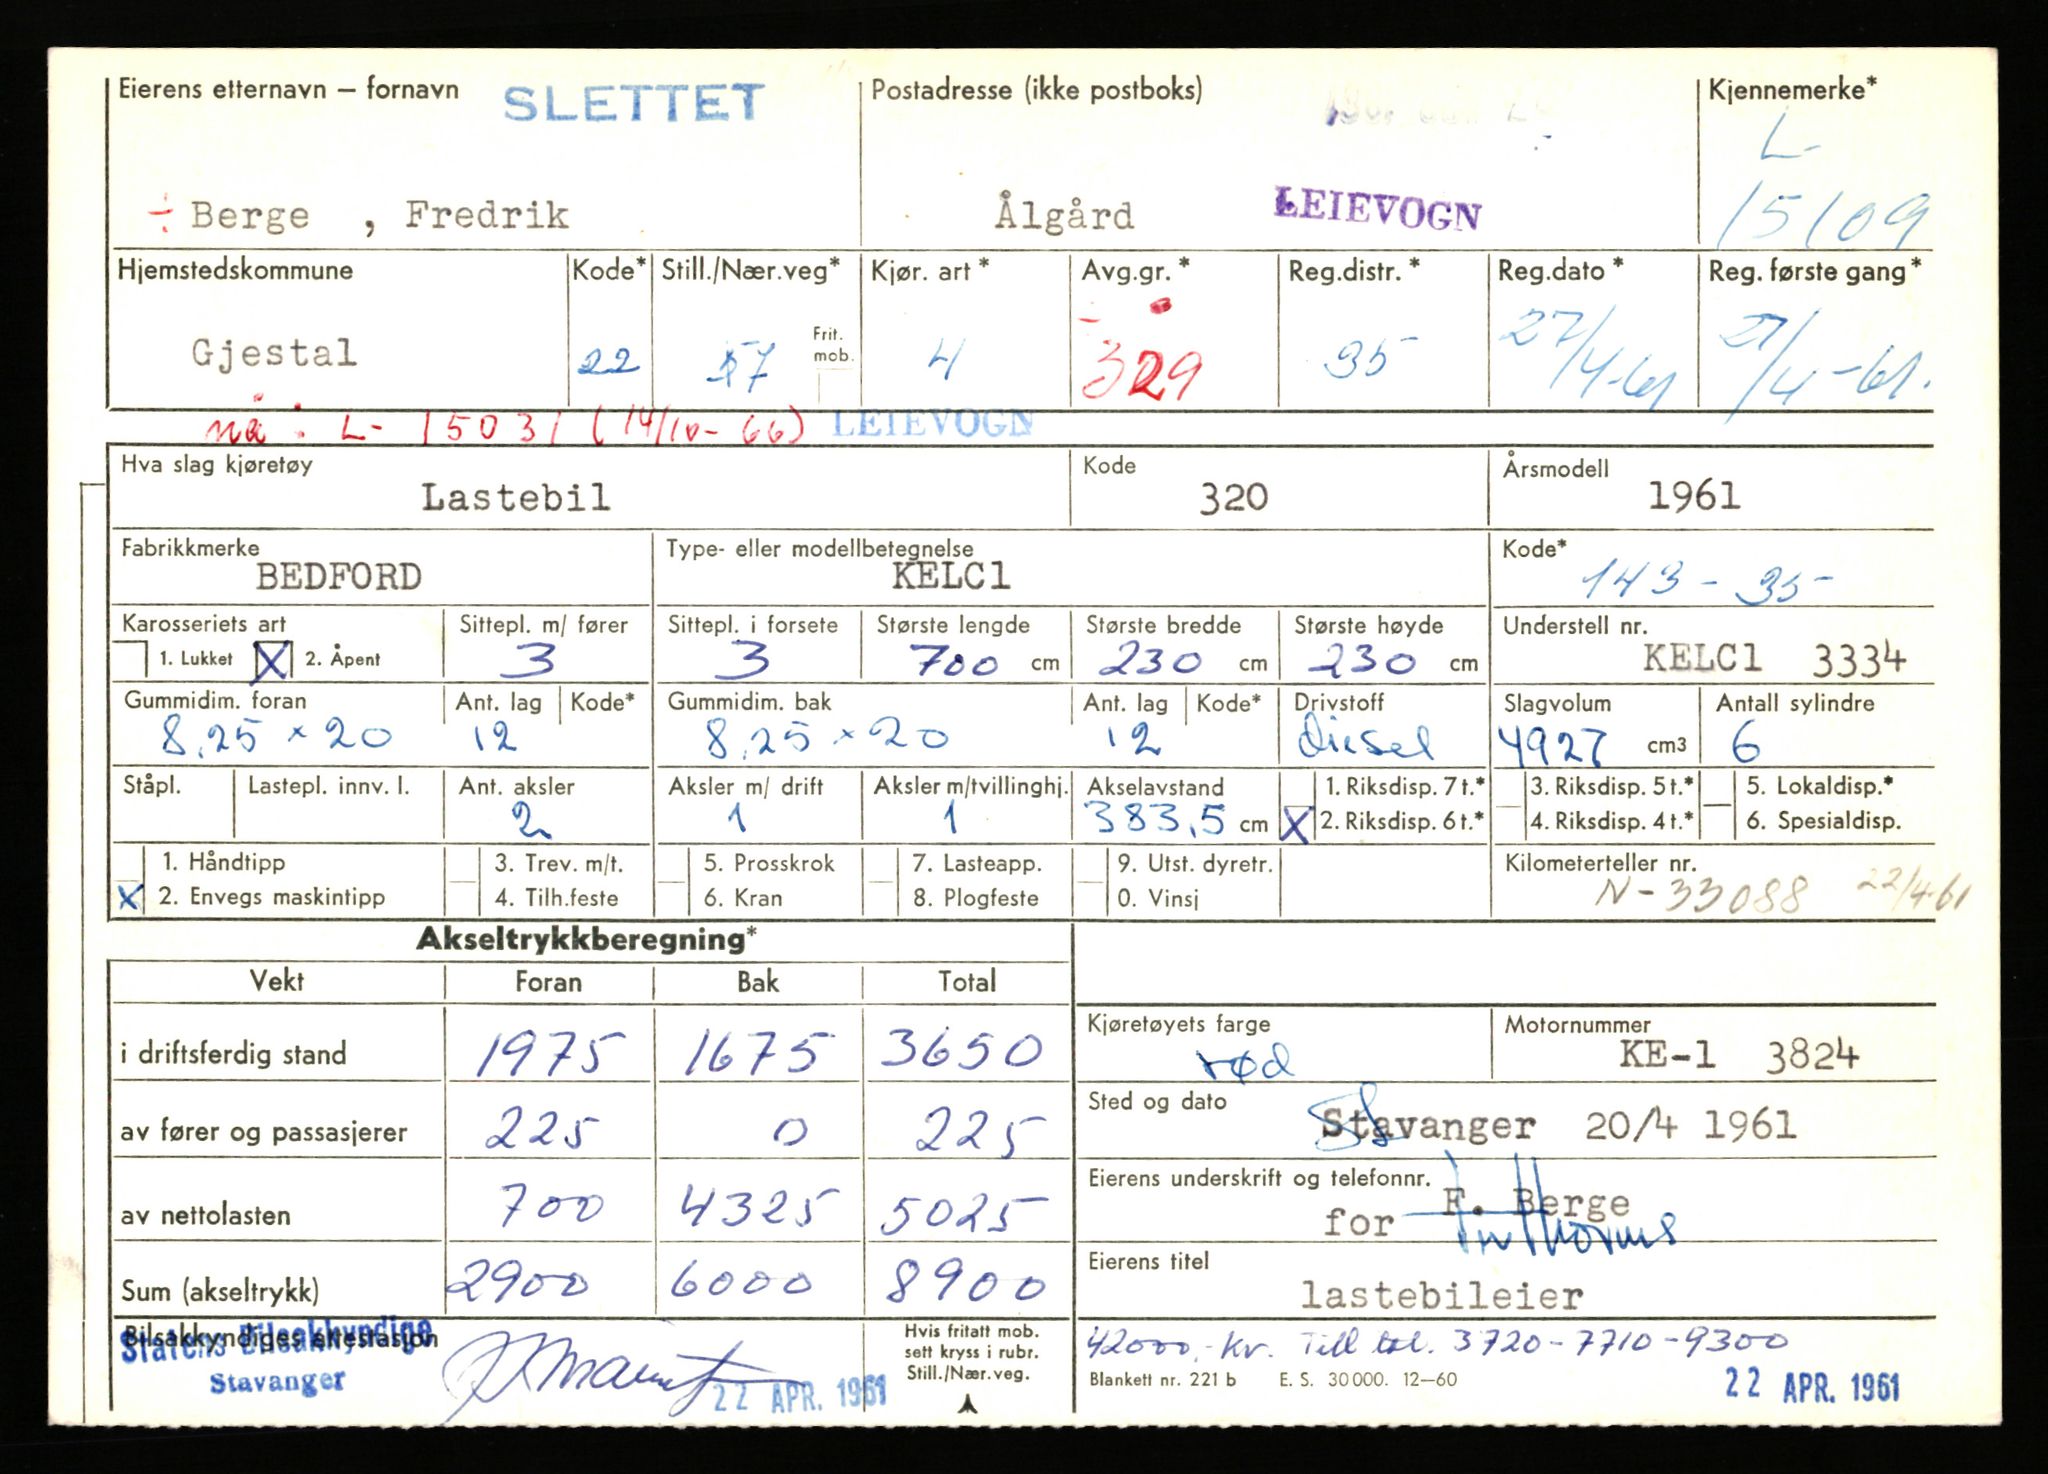 Eierens etternavn – fornavn SLETTET Postadresse (ikke postboks) Kjennemerke*
L-
÷ Berge , Fredrik Ålgård LEIEVOGN 15109
Hjemstedskommune Kode* Still./Nær.veg* Kjør. art* Avg.gr.* Reg.distr.* Reg.dato* Reg. første gang*
Gjestal 22 57 Frit. mob. 4 329 35 27/4-61 27/4-61.
nå: L- 15031 (14/10-66) LEIEVOGN
Hva slag kjøretøy Kode Årsmodell
Lastebil 320 1961
Fabrikkmerke Type- eller modellbetegnelse Kode*
BEDFORD KELC1 143-35-
Karosseriets art Sittepl. m/ fører Sittepl. i forsete Største lengde Største bredde Største høyde Understell nr.
1. Lukket X 2. Åpent 3 3 700 cm 230 cm 230 cm KELC1 3334
Gummidim. foran Ant. lag Kode* Gummidim. bak Ant. lag Kode* Drivstoff Slagvolum Antall sylindre
8.25 × 20 12 8.25 × 20 12 diesel 4927 cm3 6
Ståpl. Lastepl. innv. l. Ant. aksler Aksler m/ drift Aksler m/tvillinghj. Akselavstand 1. Riksdisp. 7 t.* 3. Riksdisp. 5 t.* 5. Lokaldisp.*
2 1 1 383,5 cm X 2. Riksdisp. 6 t.* 4. Riksdisp. 4 t.* 6. Spesialdisp.
1. Håndtipp 3. Trev. m/t. 5. Prosskrok 7. Lasteapp. 9. Utst. dyretr. Kilometerteller nr.
X 2. Envegs maskintipp 4. Tilh.feste 6. Kran 8. Plogfeste 0. Vinsj N-33088 22/4-61
Akseltrykkberegning*
Vekt Foran Bak Total
i driftsferdig stand 1975 1675 3650
Kjøretøyets farge Motornummer
rød KE-1 3824
av fører og passasjerer 225 0 225
Sted og dato
Stavanger 20/4 1961
av nettolasten 700 4325 5025
Eierens underskrift og telefonnr.
F. Berge
for
Sum (akseltrykk) 2900 6000 8900
Eierens titel
lastebileier
Bilsakkyndiges attestasjon
Statens Bilsakkyndige
Stavanger
22 APR. 1961
Hvis fritatt mob.
sett kryss i rubr.
Still./Nær.veg.
42000,- kr. Till tot. 3720-7710-9300
Blankett nr. 221 b E. S. 30 000. 12–60
22 APR. 1961